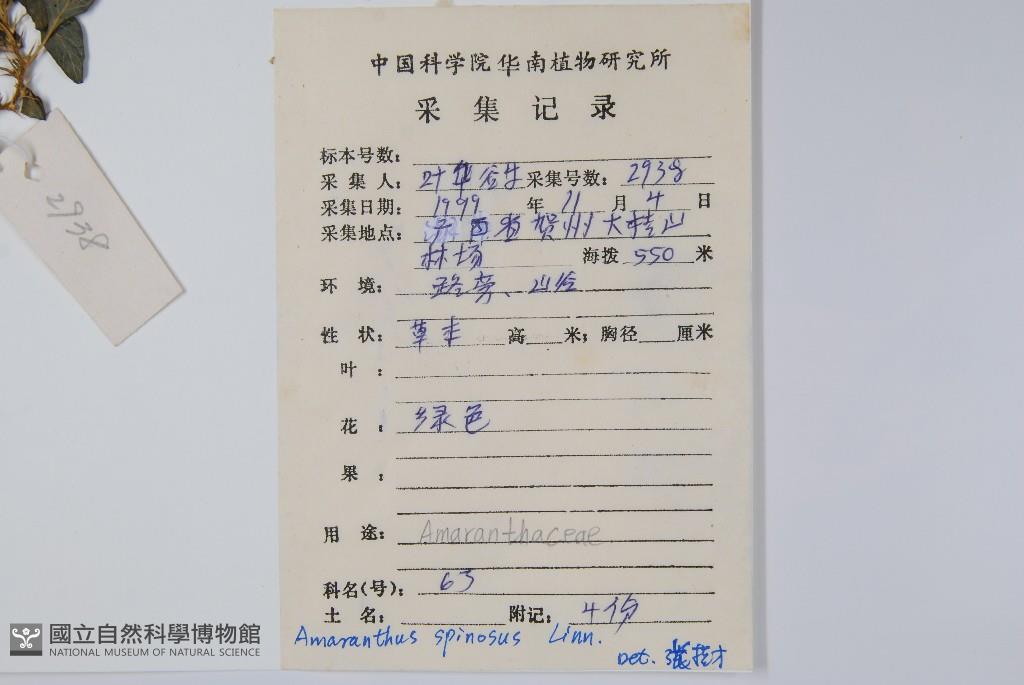 中国科学院华南植物研究所
采集记录
标本号数:
采集人: 叶华谷 采集号数: 2938
采集日期: 1999年11月4日
采集地点: 广西 贺州大桂山
林场 海拨 550 米
环境: 路旁、山谷
性状: 草本 高 米; 胸径 厘米
叶:
花: 绿色
果:
用途: Amaranthaceae
科名(号): 63
土名: 附记: 4份
Amaranthus spinosus Linn.
Det.
2938
國立自然科學博物館
NATIONAL MUSEUM OF NATURAL SCIENCE